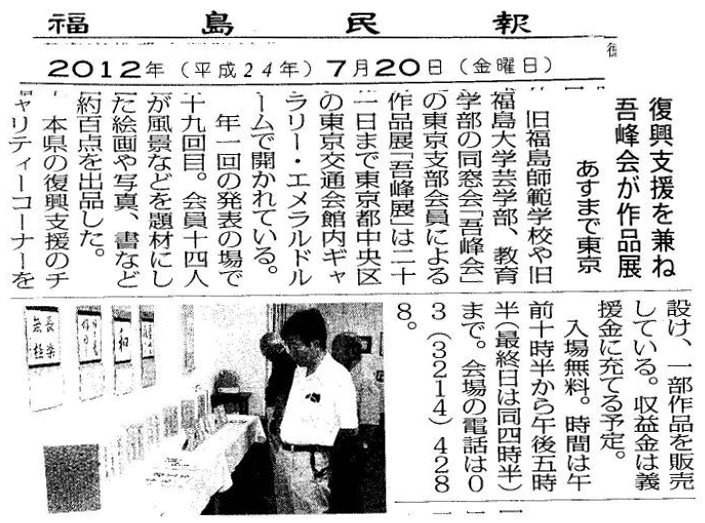 福島民報
2012年（平成24年）7月20日（金曜日）
復興支援を兼ね
吾峰会が作品展
あすまで東京
旧福島師範学校や旧
福島大学芸学部、教育
学部の同窓会「吾峰会」
の東京支部会員による
作品展「吾峰展」は二十
一日まで東京都中央区
の東京交通会館内ギャ
ラリー・エメラルドル
ームで開かれている。
年一回の発表の場で
十九回目。会員十四人
が風景などを題材にし
た絵画や写真、書など
約百点を出品した。
本県の復興支援のチ
ャリティーコーナーを
設け、一部作品を販売
している。収益金は義
援金に充てる予定。
入場無料。時間は午
前十時半から午後五時
半（最終日は同四時半）
まで。会場の電話は０
３（３２１４）４２８
８。
長楽
無極
和